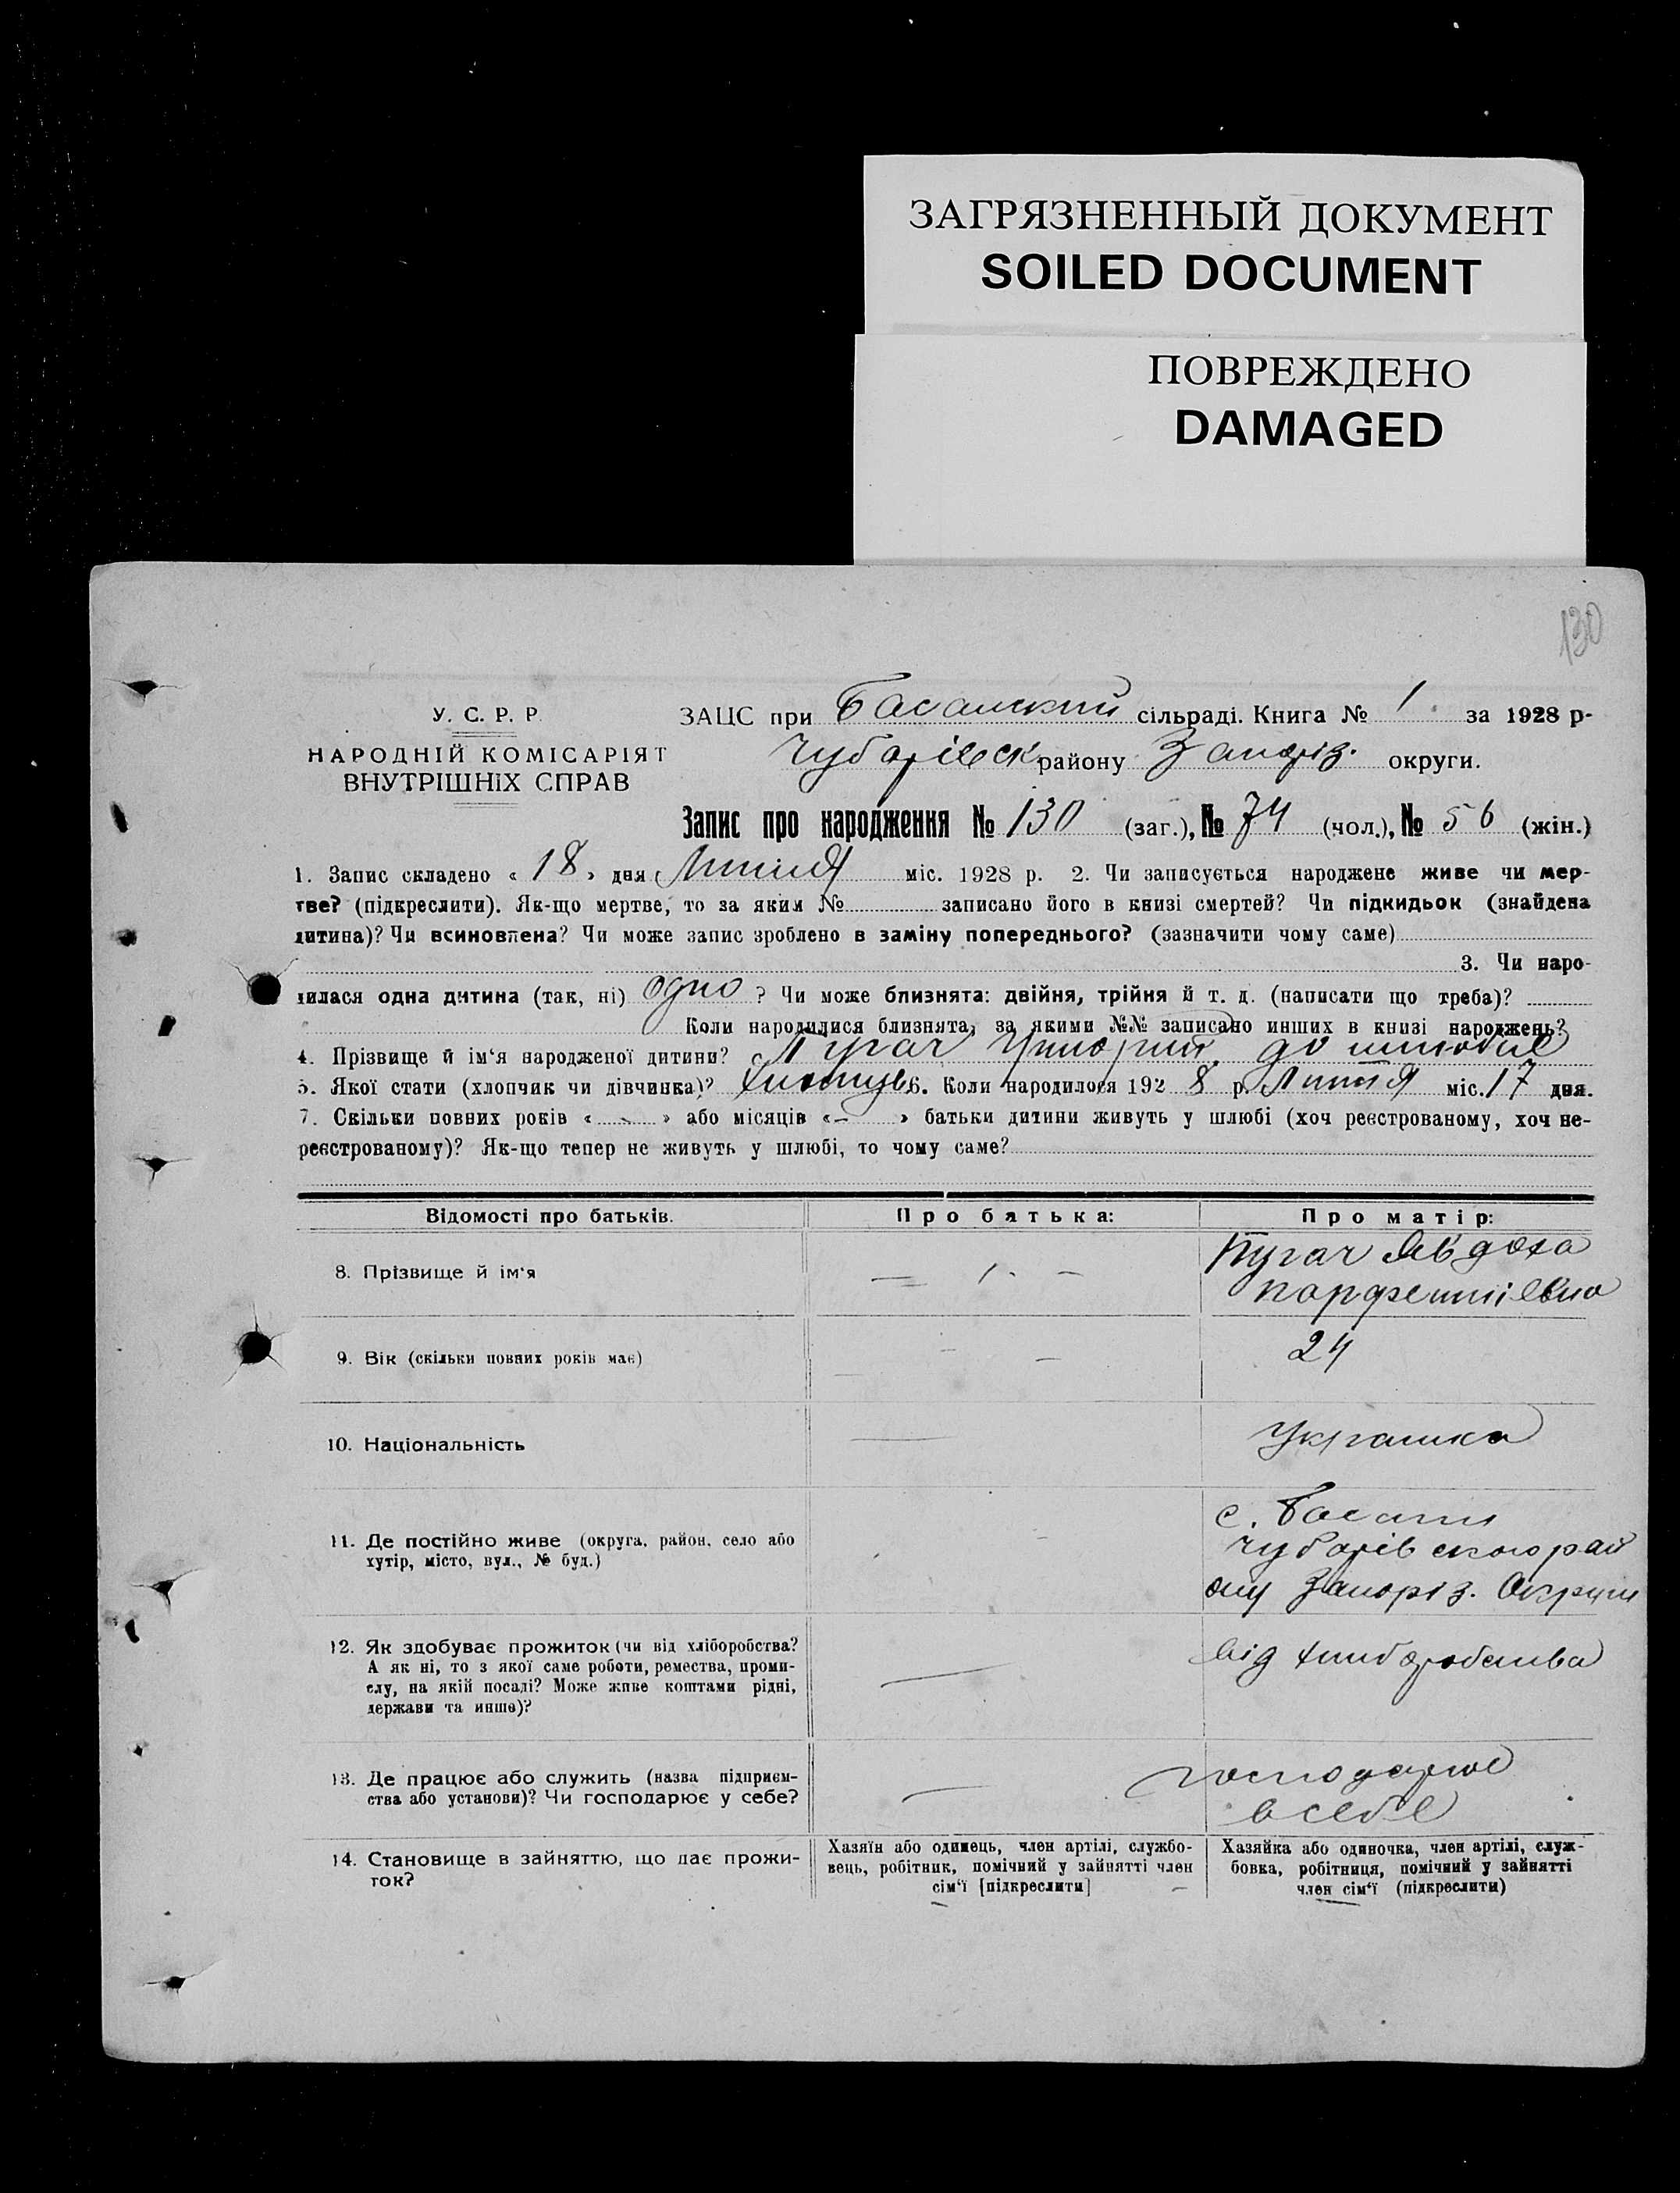 ЗАГРЯЗНЕННЫЙ ДОКУМЕНТ
SOILED DOCUMENT
ПОВРЕЖДЕНО
DAMAGED
130
У. С. Р. Р.
НАРОДНІЙ КОМІСАРІЯТ
ВНУТРІШНІХ СПРАВ
ЗАЦС при Басанский сільраді. Книга № 1. за 1928 р-
Чубарівск району Запоріз. округи.
Запис про народження № 130 (заг.), № 74 (чол.), № 56 (жін.)
1. Запис складено « 18 » дня Липня міс. 1928 р. 2. Чи записується народжене живе чи мер-
тве? (підкреслити). Як-що мертве, то за яким № записано його в книзі смертей? Чи підкидьок (знайдена
дитина)? Чи всиновлена? Чи може запис зроблено в заміну попереднього? (зазначити чому саме)
3. Чи наро-
дилася одна дитина (так, ні) одно ? Чи може близнята: двійня, трійня й т. д. (написати що треба)?
Коли народилися близнята, за якими №№ записано инших в книзі народжень?
4. Прізвище й ім‘я народженої дитини? Пугач Григорий, до шлюбне
5. Якої стати (хлопчик чи дівчинка)? Хлопець 6. Коли народилося 192 8 р. Липня міс. 17 дня.
7. Скільки повних років « - » або місяців « – » батьки дитини живуть у шлюбі (хоч реєстрованому, хоч не-
реєстрованому)? Як-що тепер не живуть у шлюбі, то чому саме?
Відомості про батьків. Про батька: Про матір:
8. Прізвище й ім‘я
Пугач Явдоха
Парфентіївна
9. Вік (скільки повних років має) 24
10. Національність Українка
11. Де постійно живе (округа, район, село або
хутір, місто, вул., № буд.)
с. Басань
Чубарівського рай
ону Запоріз. Округи
12. Як здобуває прожиток (чи від хліборобства?
А як ні, то з якої саме роботи, ремества, проми-
слу, на якій посаді? Може живе коштами рідні,
держави та инше)?
від хліборобства
13. Де працює або служить (назва підприєм-
ства або установи)? Чи господарює у себе?
господарює
в себе
14. Становище в зайняттю, що дає прожи-
ток?
Хазяїн або одинець, член артілі, службо-
вець, робітник, помічний у зайнятті член
сім‘ї [підкреслити]
Хазяйка або одиночка, член артілі, служ-
бовка, робітниця, помічний у зайнятті
член сім‘ї (підкреслити)